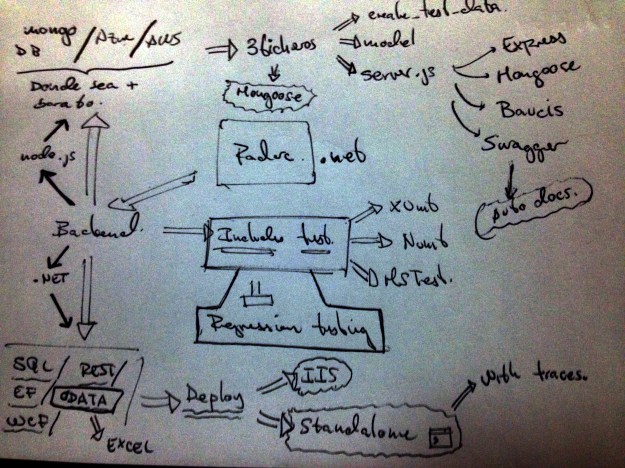 mongo / Azure / AWS
DB
Donde sea +
barato.
3 ficheros
create_test_data.
model
server.js
Mongoose
Express
Mongoose
Baucis
Swagger
auto docs.
node.js
.web
Backend.
.NET
Includes test.
XUnit
NUnit
MSTest.
Regression testing
SQL/ REST/
EF/ ODATA
WCF/
EXCEL
Deploy
IIS
Standalone
with traces.